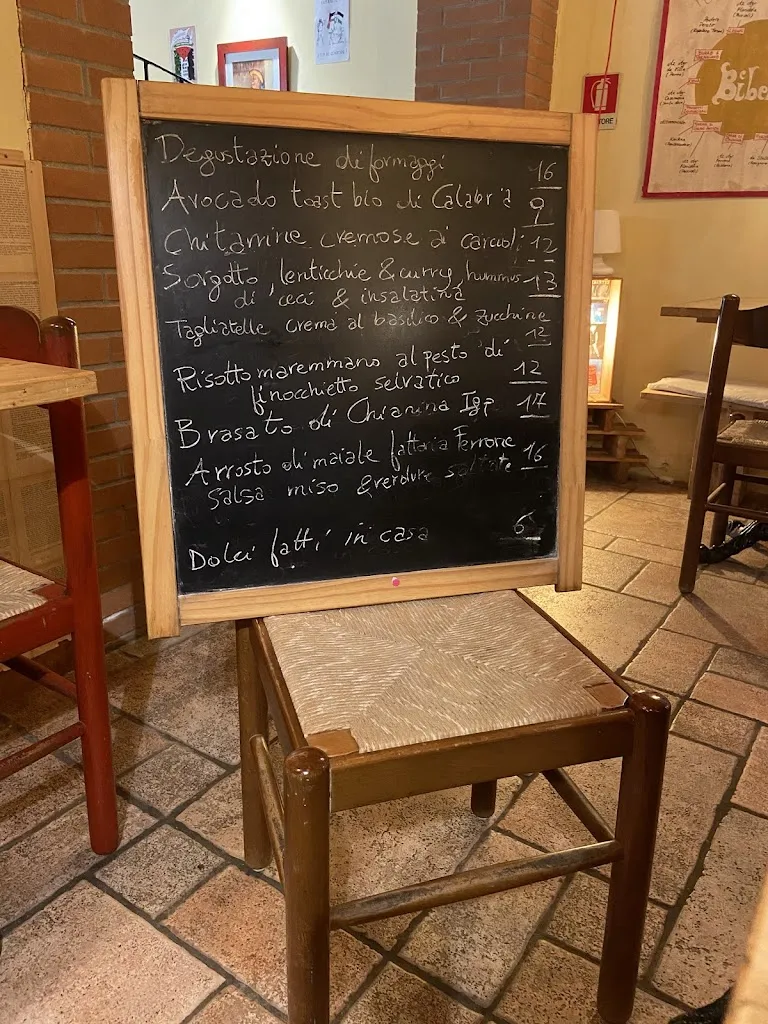 Degustazione di formaggi 16
Avocado toast bio di Calabria 9
Chitarrine cremose ai carciofi 12
Sorgotto, lenticchie & curry, hummus 13
di ceci & insalatina
Tagliatelle crema al basilico & zucchine
12
Risotto maremmano al pesto di
finocchietto selvatico 12
Brasato di Chianina Igp 17
Arrosto di maiale fattoria Ferrone 16
Salsa miso & verdure saltate
Dolci fatti in casa 6
Bibe